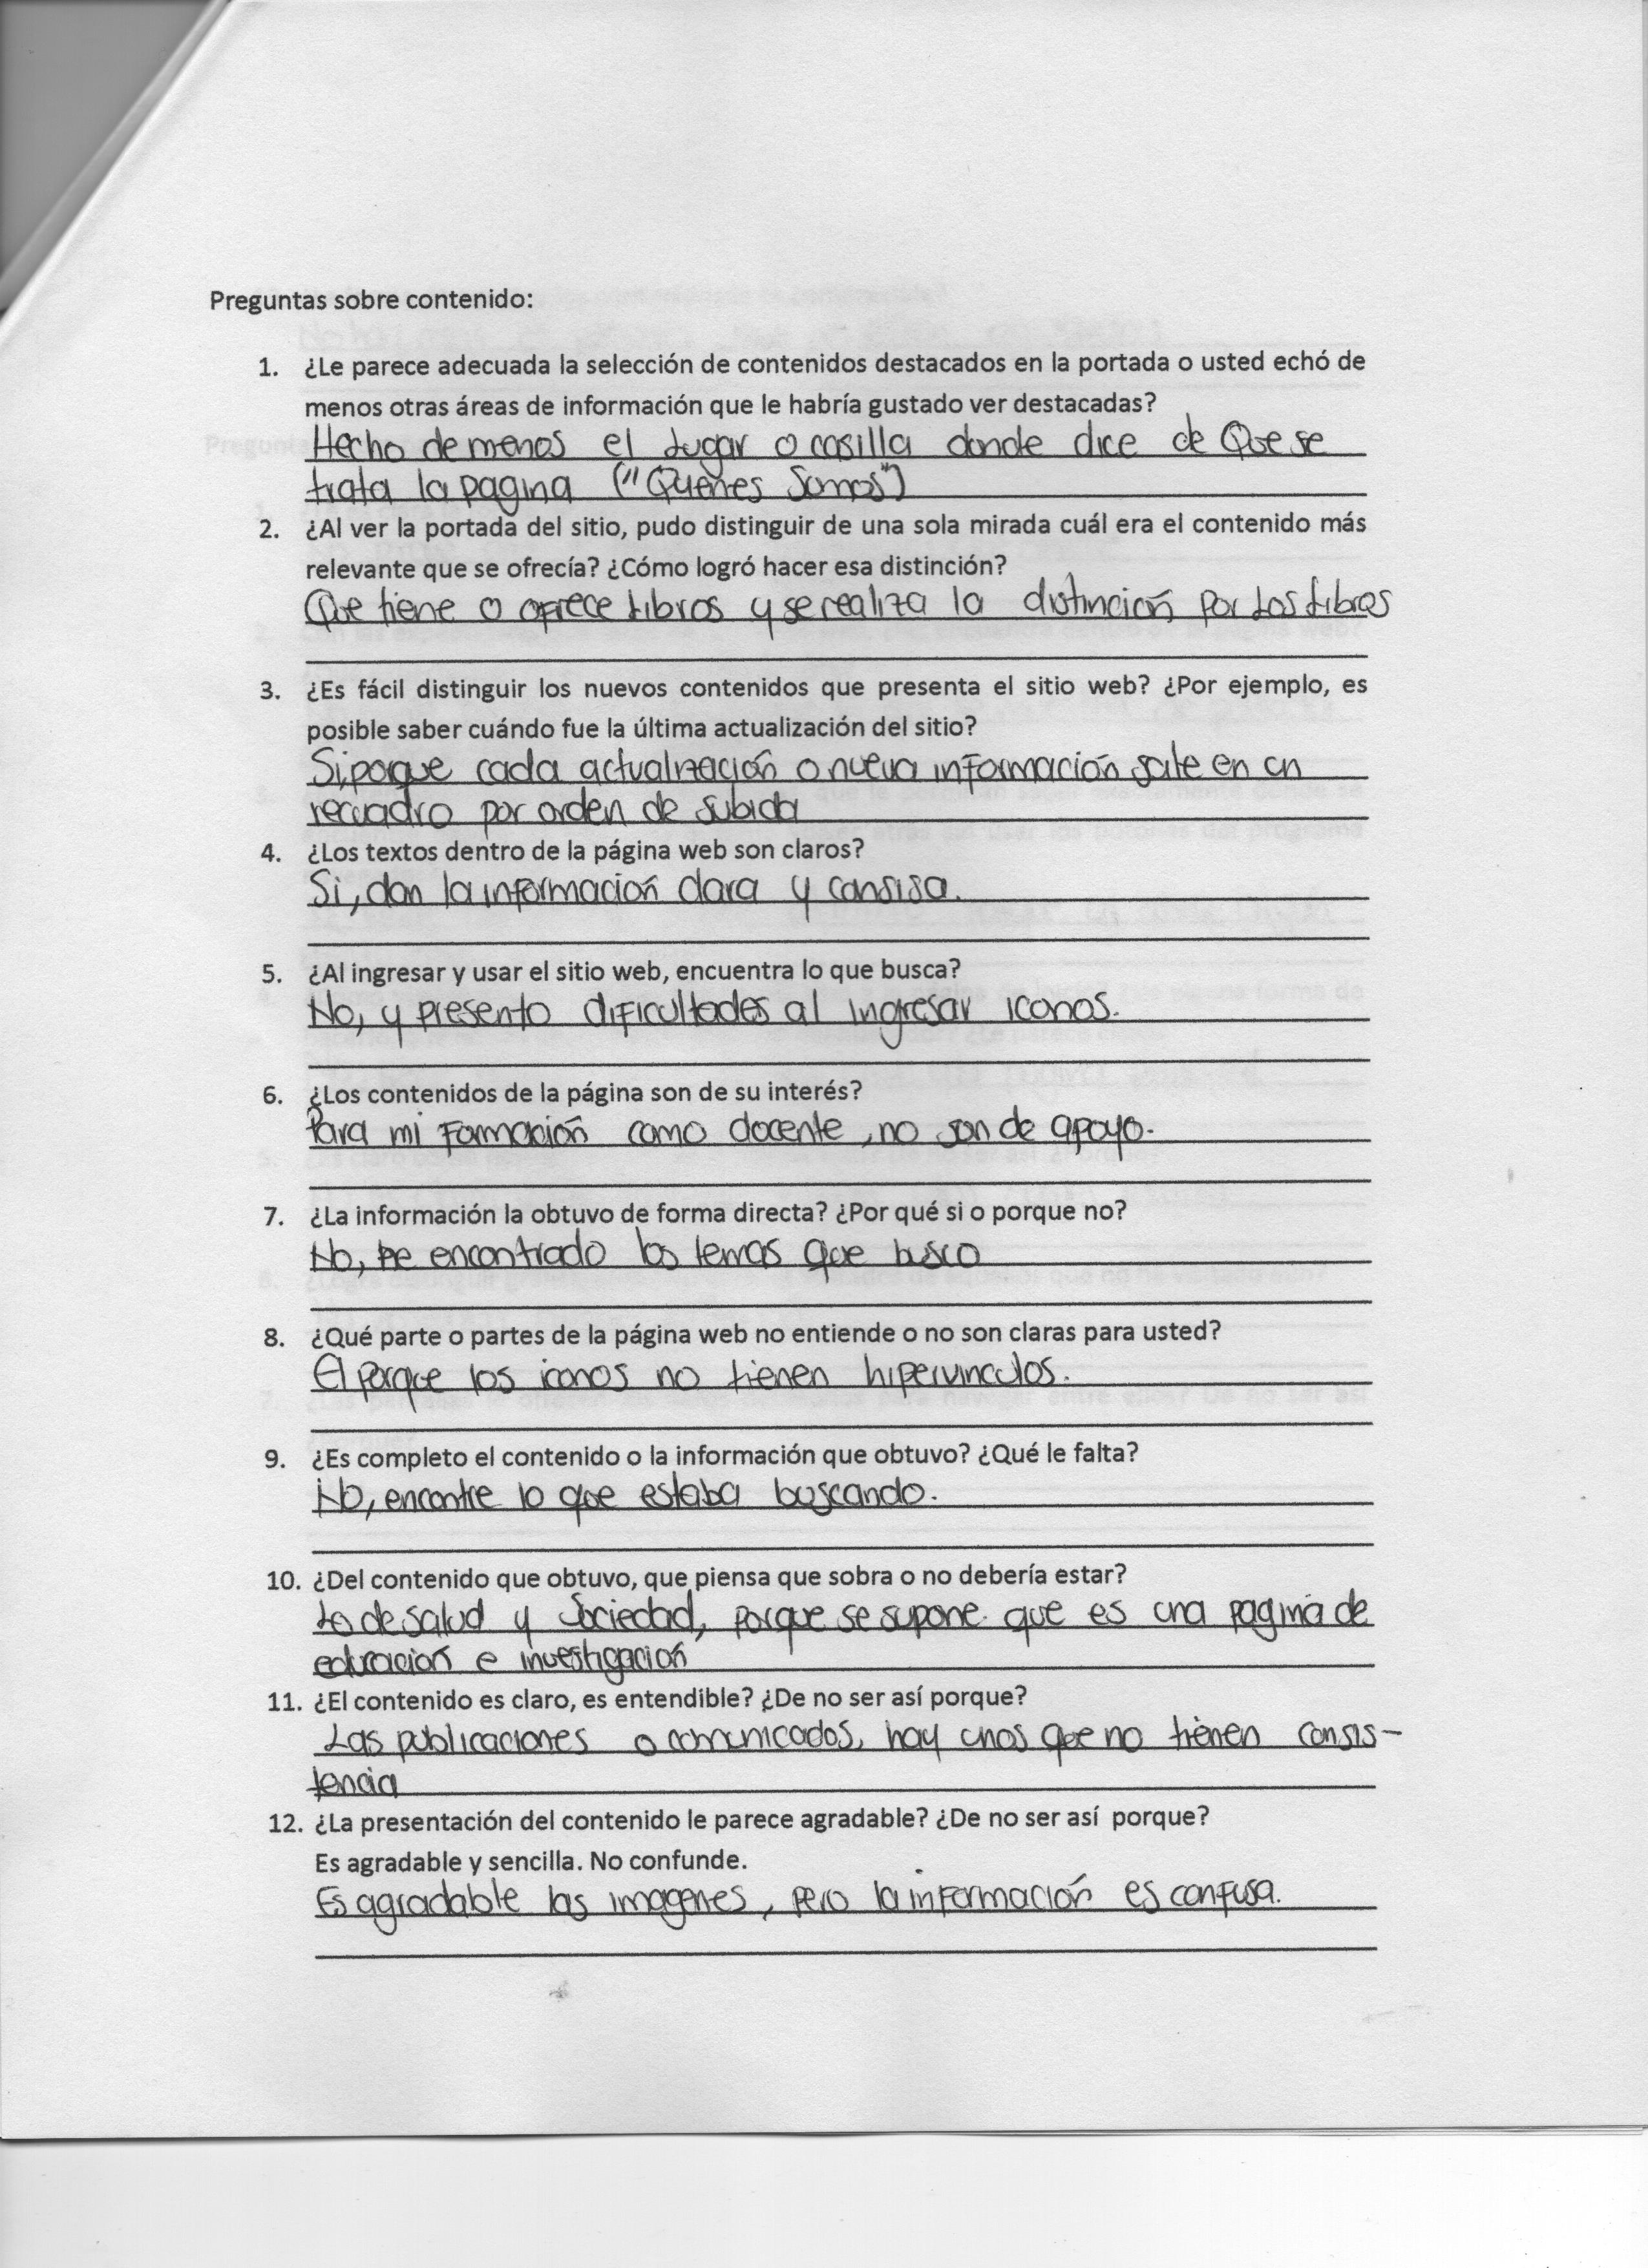 Preguntas sobre contenido:
1. ¿Le parece adecuada la selección de contenidos destacados en la portada o usted echó de
menos otras áreas de información que le habría gustado ver destacadas?
Hecho de menos el lugar o casilla donde dice de Que se
trata la pagina ("Quienes Somos")
2. ¿Al ver la portada del sitio, pudo distinguir de una sola mirada cuál era el contenido más
relevante que se ofrecía? ¿Cómo logró hacer esa distinción?
Que tiene o ofrece Libros y se realiza la distinción por Los Libros
3. ¿Es fácil distinguir los nuevos contenidos que presenta el sitio web? ¿Por ejemplo, es
posible saber cuándo fue la última actualización del sitio?
Si, porque cada actualización o nueva información sale en un
recuadro por orden de subida
4. ¿Los textos dentro de la página web son claros?
Si, dan la información clara y consisa.
5. ¿Al ingresar y usar el sitio web, encuentra lo que busca?
No, y presento dificultades al ingresar iconos.
6. ¿Los contenidos de la página son de su interés?
Para mi Formación como docente, no son de apoyo.
7. ¿La información la obtuvo de forma directa? ¿Por qué si o porque no?
No, he encontrado los temas que busco
8. ¿Qué parte o partes de la página web no entiende o no son claras para usted?
El porque los iconos no tienen hipervinculos.
9. ¿Es completo el contenido o la información que obtuvo? ¿Qué le falta?
No, encontre lo que estaba buscando.
10. ¿Del contenido que obtuvo, que piensa que sobra o no debería estar?
Lo de salud y Sociedad, porque se supone que es una pagina de
educación e investigación
11. ¿El contenido es claro, es entendible? ¿De no ser así porque?
Las publicaciones o comunicados, hay unos que no tienen consis-
tencia
12. ¿La presentación del contenido le parece agradable? ¿De no ser así porque?
Es agradable y sencilla. No confunde.
Es agradable las imagenes, pero la información es confusa.